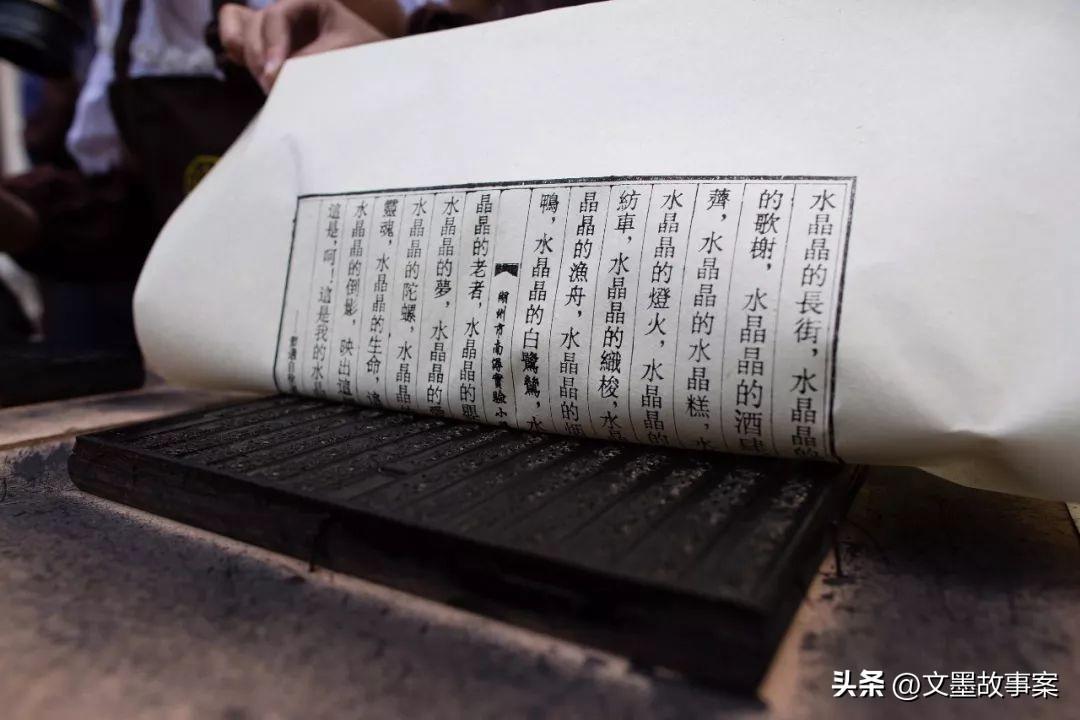 水晶晶的長街，水晶晶
的歌榭，水晶晶的酒肆
薺，水晶晶的水晶糕，水
水晶晶的燈火，水晶晶的
紡車，水晶晶的織梭，水晶
晶晶的漁舟，水晶晶的
鴨，水晶晶的白鷺鷥，水
湖州市南潯實驗小
晶晶的老者，水晶晶的
水晶晶的夢，水晶晶的
水晶晶的陀螺，水晶晶
靈魂，水晶晶的生命，這
水晶晶的倒影，映出這
這是，呵！這是我的水晶
——節選自徐
头条 @文墨故事案